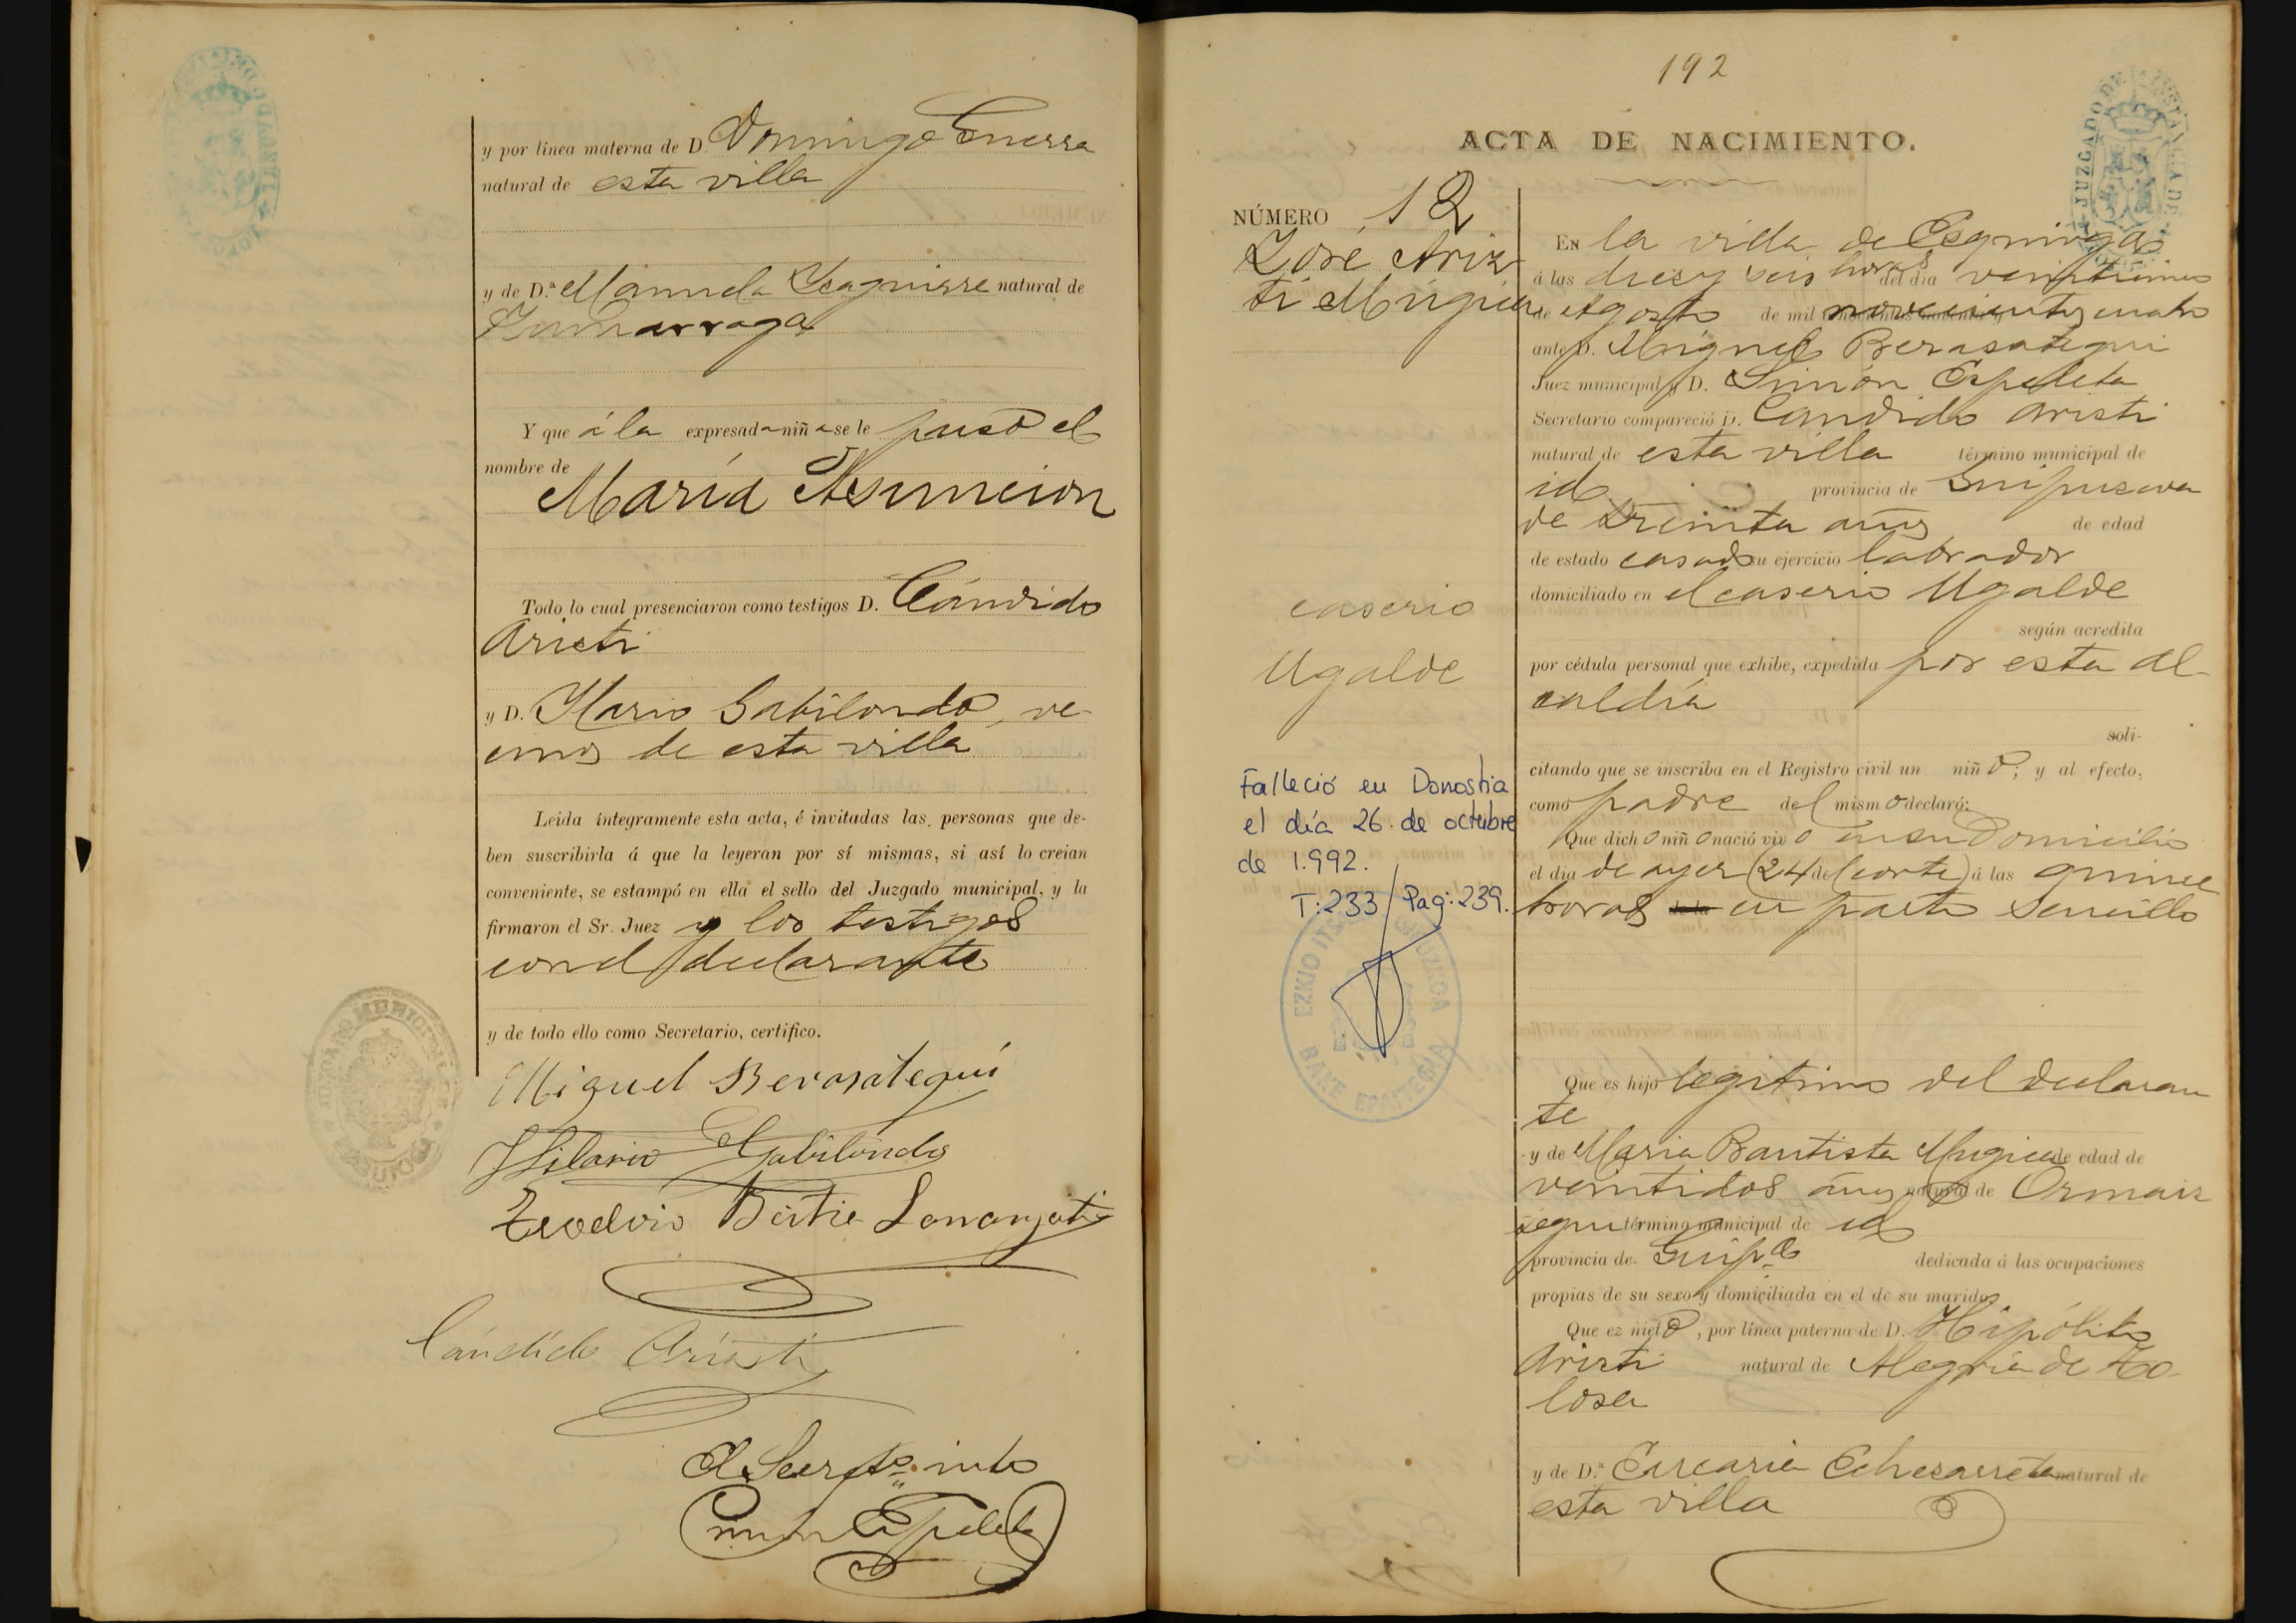 y por línea materna de D. Domingo Guerra
natural de esta villa
y de D.ª Manuela Yzaguirre natural de
Zumarraga
Y que á la expresada niña se le puso el
nombre de
María Asuncion
Todo lo cual presenciaron como testigos D. Cándido
Aristi
y D. Ylario Gabilondo, ve-
cinos de esta villa
Leida íntegramente esta acta, é invitadas las personas que de-
ben suscribirla á que la leyeran por sí mismas, si así lo creian
conveniente, se estampó en ella el sello del Juzgado municipal, y la
firmaron el Sr. Juez y los testigos
con el declarante
y de todo ello como Secretario, certifico.
Miguel Berasategui
Hilario Gabilondo
Teodoro
Cándido Aristi
El Secret.º
Simon Ezpeleta
192
ACTA DE NACIMIENTO.
NÚMERO 12
José Ariz
ti Múgica
caserio
Ugalde
Falleció en Donostia
el día 26 de octubre
de 1.992.
T:233/Pag:239.
EZKIO ITSASO GIPUZKOA
BAKE EPAITEGIA
JUZGADO DE INSTANCIA DE
En la villa de Ezquioga
á las diez y seis horas del dia veinticinco
de Agosto de mil novecientos cuatro
ante D. Miguel Berasategui
Juez municipal y D. Simón Ezpeleta
Secretario compareció D. Candido Aristi
natural de esta villa término municipal de
id provincia de Guipuzcoa
de treinta años de edad
de estado casado su ejercicio labrador
domiciliado en el caserio Ugalde
según acredita
por cédula personal que exhibe, expedida por esta Al-
caldía
soli-
citando que se inscriba en el Registro civil un niño; y al efecto,
como padre del mismo declaró:
Que dicho niño nació vivo en su domicilio
el dia de ayer (24 del corte) á las quince
horas en parto sencillo
Que es hijo legitimo del declaran
te
y de Maria Bautista Mugica de edad de
veintidos años natural de Ormaiz
tegui término municipal de id
provincia de Guip.ª dedicada á las ocupaciones
propias de su sexo y domiciliada en el de su marido
Que ez nieto, por línea paterna de D. Hipólito
Aristi natural de Alegría de To-
losa
y de D.ª Echezarreta natural de
esta villa